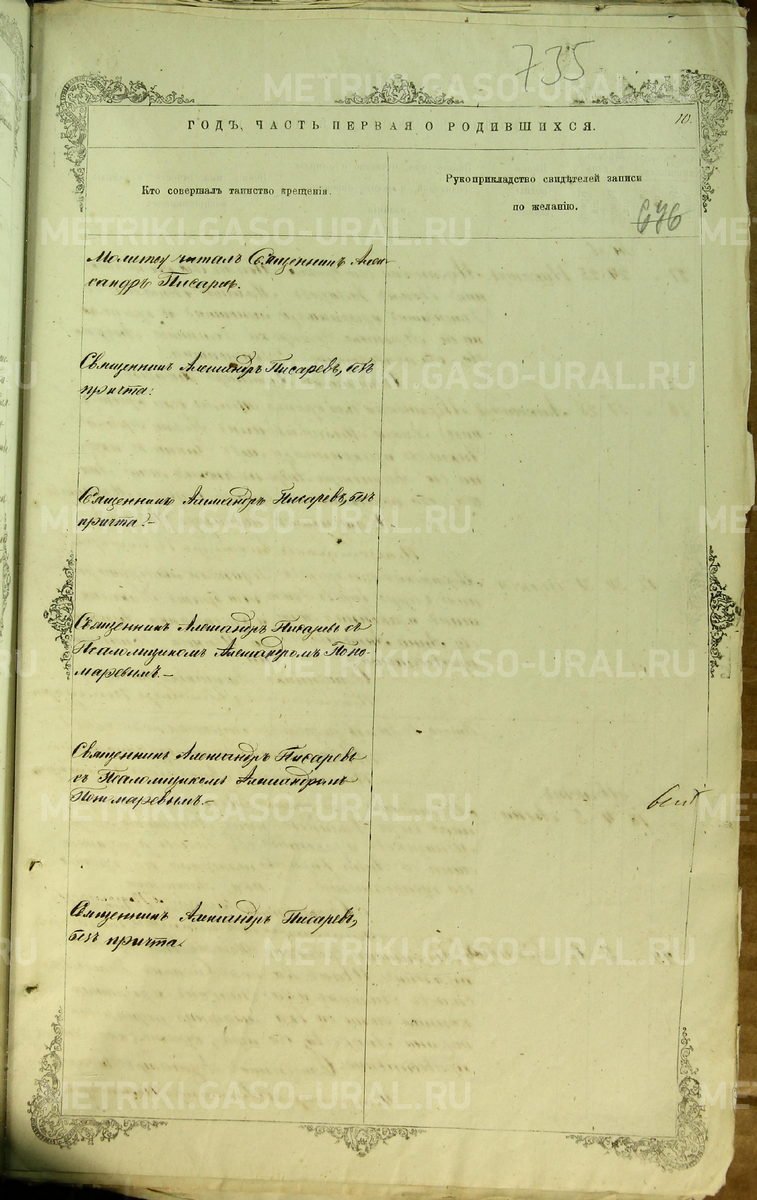 735
ГОДЪ, ЧАСТЬ ПЕРВАЯ О РОДИВШИХСЯ.
10.
Кто совершалъ таинство крещенія.
Рукоприкладство свидѣтелей записи
по желанію.
676
Молитву читалъ Священникъ Алек-
сандръ Писаревъ.
Священникъ Александръ Писаревъ, безъ
причта.
Священникъ Александръ Писаревъ, безъ
причта.-
Священникъ Александръ Писаревъ съ
Псаломщикомъ Александромъ Поно-
маревымъ.-
Священникъ Александръ Писаревъ
съ Псаломщикомъ Александромъ
Пономаревымъ.-
Священникъ Александръ Писаревъ,
безъ причта.
METRIKI.GASO-URAL.RU